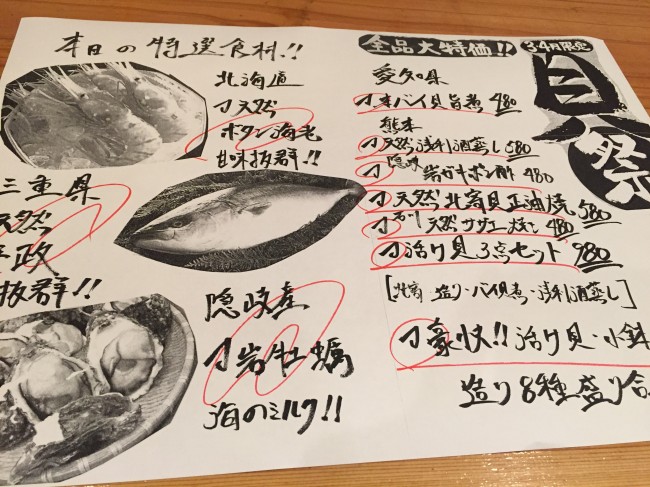 本日の特選食材!!
北海道
刀天然
ボタン海老
甘味抜群!!
三重県
天然
平政
抜群!!
隠岐産
刀岩牡蠣
海のミルク!!
全品大特価!!
3.4月限定
貝祭
愛知県
刀本バイ貝旨煮 480
熊本
刀天然浅利酒蒸し 580
隠岐
岩ガキポン酢 480
刀天然北寄貝正油焼 580
刀天然サザエ焼 480
刀活け貝3点セット 980
[北寄造り・バイ貝煮・浅利酒蒸し]
刀豪快!!活け貝・小鉢
造り8種盛り合